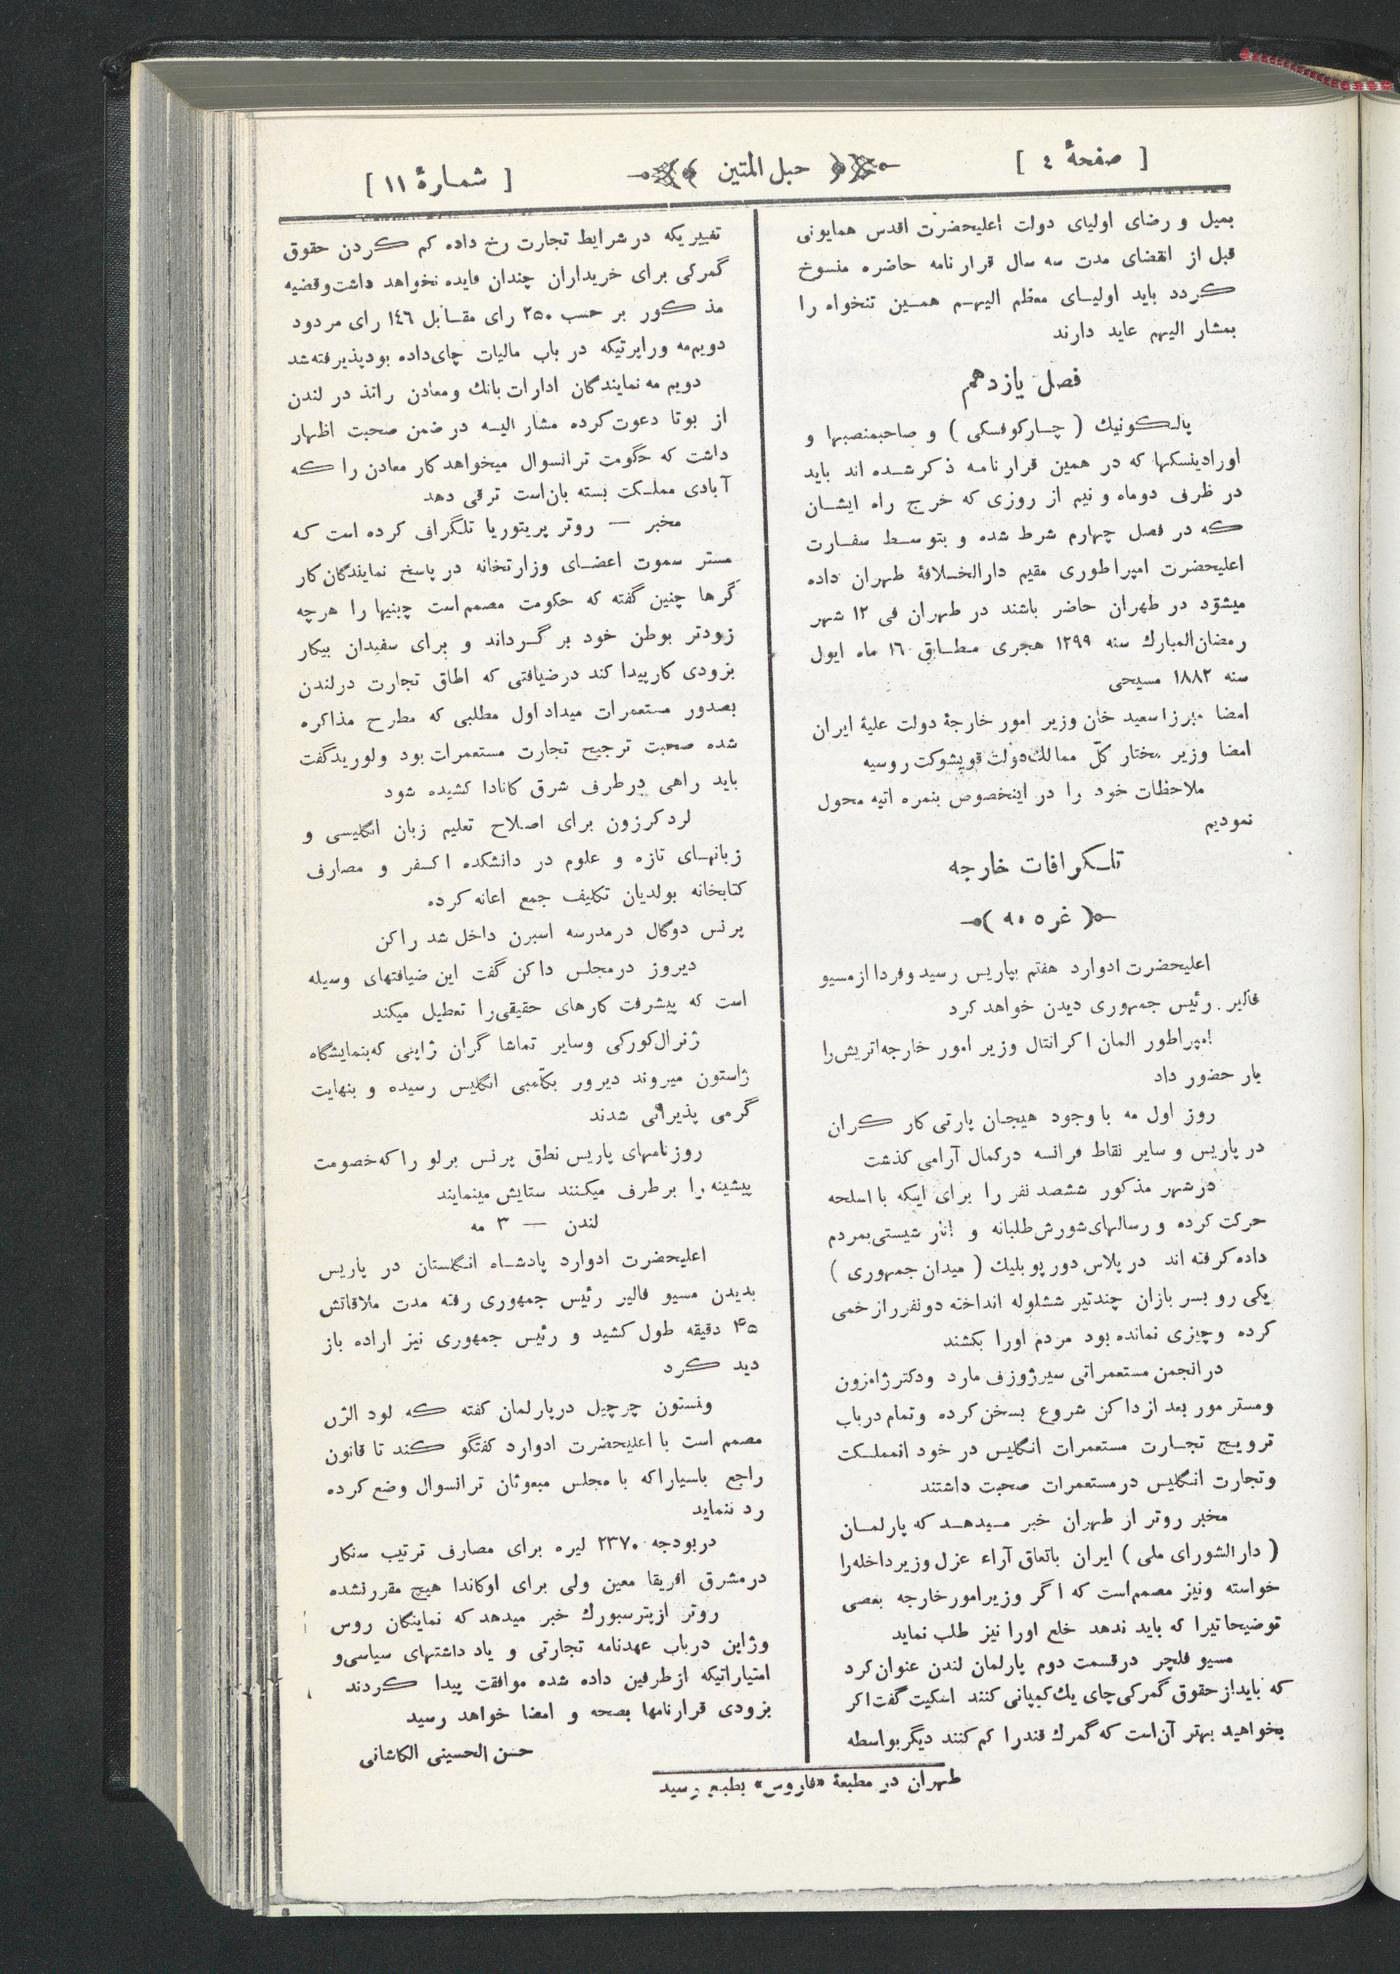 [ صفحهٔ ٤ ]
حبل المتین
[ شمارهٔ ١١ ]
بمیل و رضای اولیای دولت اعلیحضرت اقدس همایونی
قبل از انقضای مدت سه سال قرار نامه حاضره منسوخ
کردد باید اولیای معظم الیهم همین تنخواه را
بمشار الیهم عاید دارند
فصل یازدهم
پالکونیك ( چارکوفسکی ) و صاحبمنصبها و
اورادینسکیها که در همین قرار نامه ذکر شده اند باید
در ظرف دوماه و نیم از روزی که خرج راه ایشان
که در فصل چهارم شرط شده و بتوسط سفارت
اعلیحضرت امپراطوری مقیم دارالخلافهٔ طهران داده
میشود در طهران حاضر باشند در طهران فی ١٢ شهر
رمضان‌المبارك سنه ١٢٩٩ هجری مطابق ١٦ ماه ایول
سنه ١٨٨٢ مسیحی
امضا میرزا سعید خان وزیر امور خارجهٔ دولت علیهٔ ایران
امضا وزیر مختار کلّ ممالك دولت قویشوکت روسیه
ملاحظات خود را در اینخصوص بنمره اتیه محول
نمودیم
تلکرافات خارجه
( غره ٩٠ )
اعلیحضرت ادوارد هفتم بپاریس رسید و فردا از مسیو
فالیر رئیس جمهوری دیدن خواهد کرد
امپراطور المان اکرانتال وزیر امور خارجه اتریش را
بار حضور داد
روز اول مه با وجود هیجان پارتی کار کران
در پاریس و سایر نقاط فرانسه در کمال آرامی کذشت
در شهر مذکور ششصد نفر را برای اینکه با اسلحه
حرکت کرده و رسالهای شورش طلبانه و انارشیستی بمردم
داده کرفته اند در پلاس دور پوبلیك ( میدان جمهوری )
یکی رو بسر بازان چند تیر ششلوله انداخته دونفر را زخمی
کرده و چیزی نمانده بود مردم اورا بکشند
در انجمن مستعمراتی سیر ژوزف مارد و دکتر ژامزون
ومستر مور بعد از داکن شروع بسخن کرده و تمام در باب
ترویج تجارت مستعمرات انگلیس در خود انمملکت
وتجارت انگلیس در مستعمرات صحبت داشتند
مخبر روتر از طهران خبر میدهد که پارلمان
( دارالشورای ملی ) ایران باتفاق آراء عزل وزیر داخله را
خواسته ونیز مصمم است که اگر وزیر امور خارجه بعضی
توضیحاتیرا که باید ندهد خلع اورا نیز طلب نماید
مسیو فلچر در قسمت دوم پارلمان لندن عنوان کرد
که باید از حقوق گمرکی چای یك کمپانی کنند اسکیت گفت اکر
بخواهید بهتر آن است که گمرك قند را کم کنند دیگر بواسطه
تغییریکه در شرایط تجارت رخ داده کم کردن حقوق
گمرکی برای خریداران چندان فایده نخواهد داشت و قضیه
مذکور بر حسب ٢٥٠ رای مقابل ١٤٦ رای مردود
دویم مه وراپرتیکه در باب مالیات چای داده بود پذیرفته شد
دویم مه نمایندگان ادارات بانك ومعادن راند در لندن
از بوتا دعوت کرده مشار الیه در ضمن صحبت اظهار
داشت که حگومت ترانسوال میخواهد کار معادن را که
آبادی مملکت بسته بان است ترقی دهد
مخبر — روتر پریتوریا تلگراف کرده است که
مستر سموت اعضای وزارتخانه در پاسخ نمایندگان کار
گرها چنین گفته که حکومت مصمم است چینیها را هرچه
زودتر بوطن خود بر گرداند و برای سفیدان بیکار
بزودی کار پیدا کند در ضیافتی که اطاق تجارت در لندن
بصدور مستعمرات میداد اول مطلبی که مطرح مذاکره
شده صحبت ترجیح تجارت مستعمرات بود ولورید گفت
باید راهی در طرف شرق کانادا کشیده شود
لرد کرزون برای اصلاح تعلیم زبان انگلیسی و
زبانهای تازه و علوم در دانشکده اکسفر و مصارف
کتابخانه بولدیان تکلیف جمع اعانه کرده
پرنس دوگال در مدرسه اسبرن داخل شد راکن
دیروز در مجلس داکن گفت این ضیافتهای وسیله
است که پیشرفت کارهای حقیقی را تعطیل میکند
ژنرال کورکی وسایر تماشا گران ژاپنی که بنمایشگاه
ژاستون میروند دیرور بکامبی انگلیس رسیده و بنهایت
گرمی پذیرائی شدند
روزنامهای پاریس نطق پرنس برلو را که خصومت
پیشینه را برطرف میکنند ستایش مینمایند
لندن — ٣ مه
اعلیحضرت ادوارد پادشاه انگلستان در پاریس
بدیدن مسیو فالیر رئیس جمهوری رفته مدت ملاقاتش
۴۵ دقیقه طول کشید و رئیس جمهوری نیز اراده باز
دید کرد
ونستون چرچیل در پارلمان کفته که لود الژن
مصمم است با اعلیحضرت ادوارد کفتگو کند تا قانون
راجع باسیارا که با مجلس مبعوثان ترانسوال وضع کرده
رد ننماید
در بودجه ٢٣٧٠ لیره برای مصارف ترتیب سنکار
در مشرق افریقا معین ولی برای اوکاندا هیچ مقرر نشده
روتر از پترسبورك خبر میدهد که نماینگان روس
وژاپن در باب عهدنامه تجارتی و یادداشتهای سیاسی و
امتیاراتیکه از طرفین داده شده موافقت پیدا کردند
بزودی قرار نامها بصحه و امضا خواهد رسید
حسن الحسینی الکاشانی
طهران در مطبعهٔ «فاروس» بطبع رسید